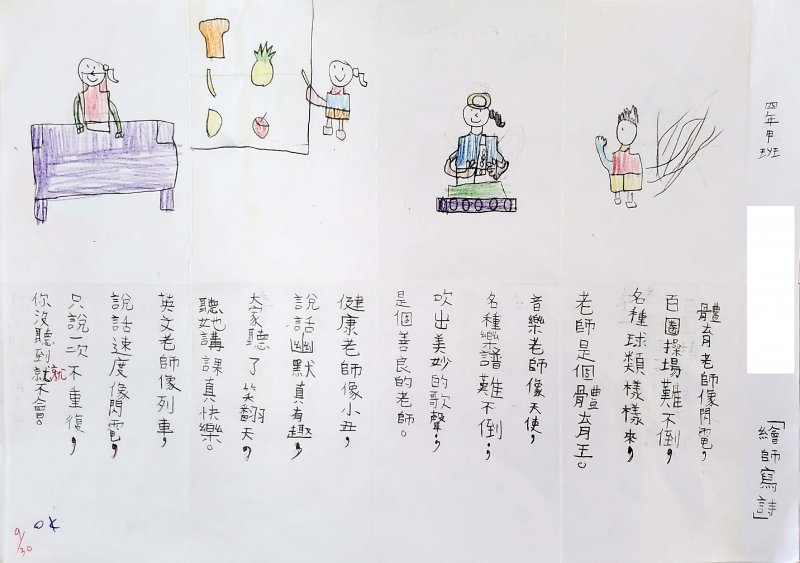 四年甲班
「繪師寫詩」
體育老師像閃電，
百圈操場難不倒，
各種球類樣樣來，
老師是個體育王。
音樂老師像天使，
各種樂譜難不倒；
吹出美妙的歌聲；
是個善良的老師。
健康老師像小丑，
說話幽默真有趣，
大家聽了笑翻天，
聽她講課真快樂。
英文老師像列車，
說話速度像閃電，
只說一次不重復，
你沒聽到就不會。
就
OK
9/30